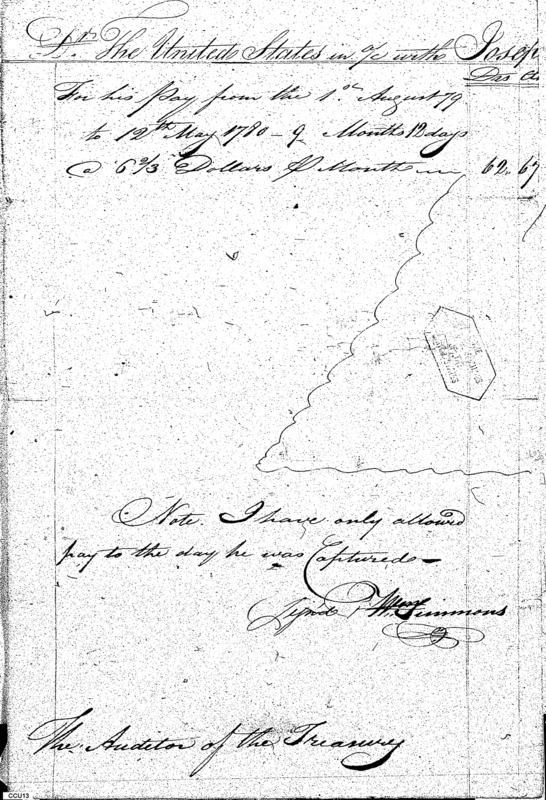 Dr. The United States in a/c with Josep
Drs
For his Pay from the 1st. August 79
to 12th May 1780 - 9 Months 12 days
@ 6 2/3 Dollars P Month 62. 67
Note. I have only allowed
pay to the day he was Captured
Sign'd Simmons
The Auditor of the Treasury
CCU13